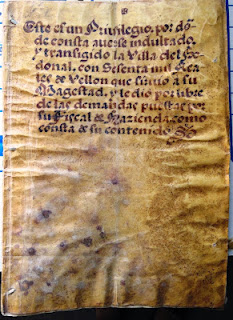 Este es un Privilegio, por dō-
de consta averse indultado,
y transigido la Villa del Pe-
donal, con Sesenta mil Rea-
les de Vellon que sirvio a su
Magestad, y le dio por libre
de las demandas puestas por
su Fiscal de Hazienda, como
consta de su contenido.